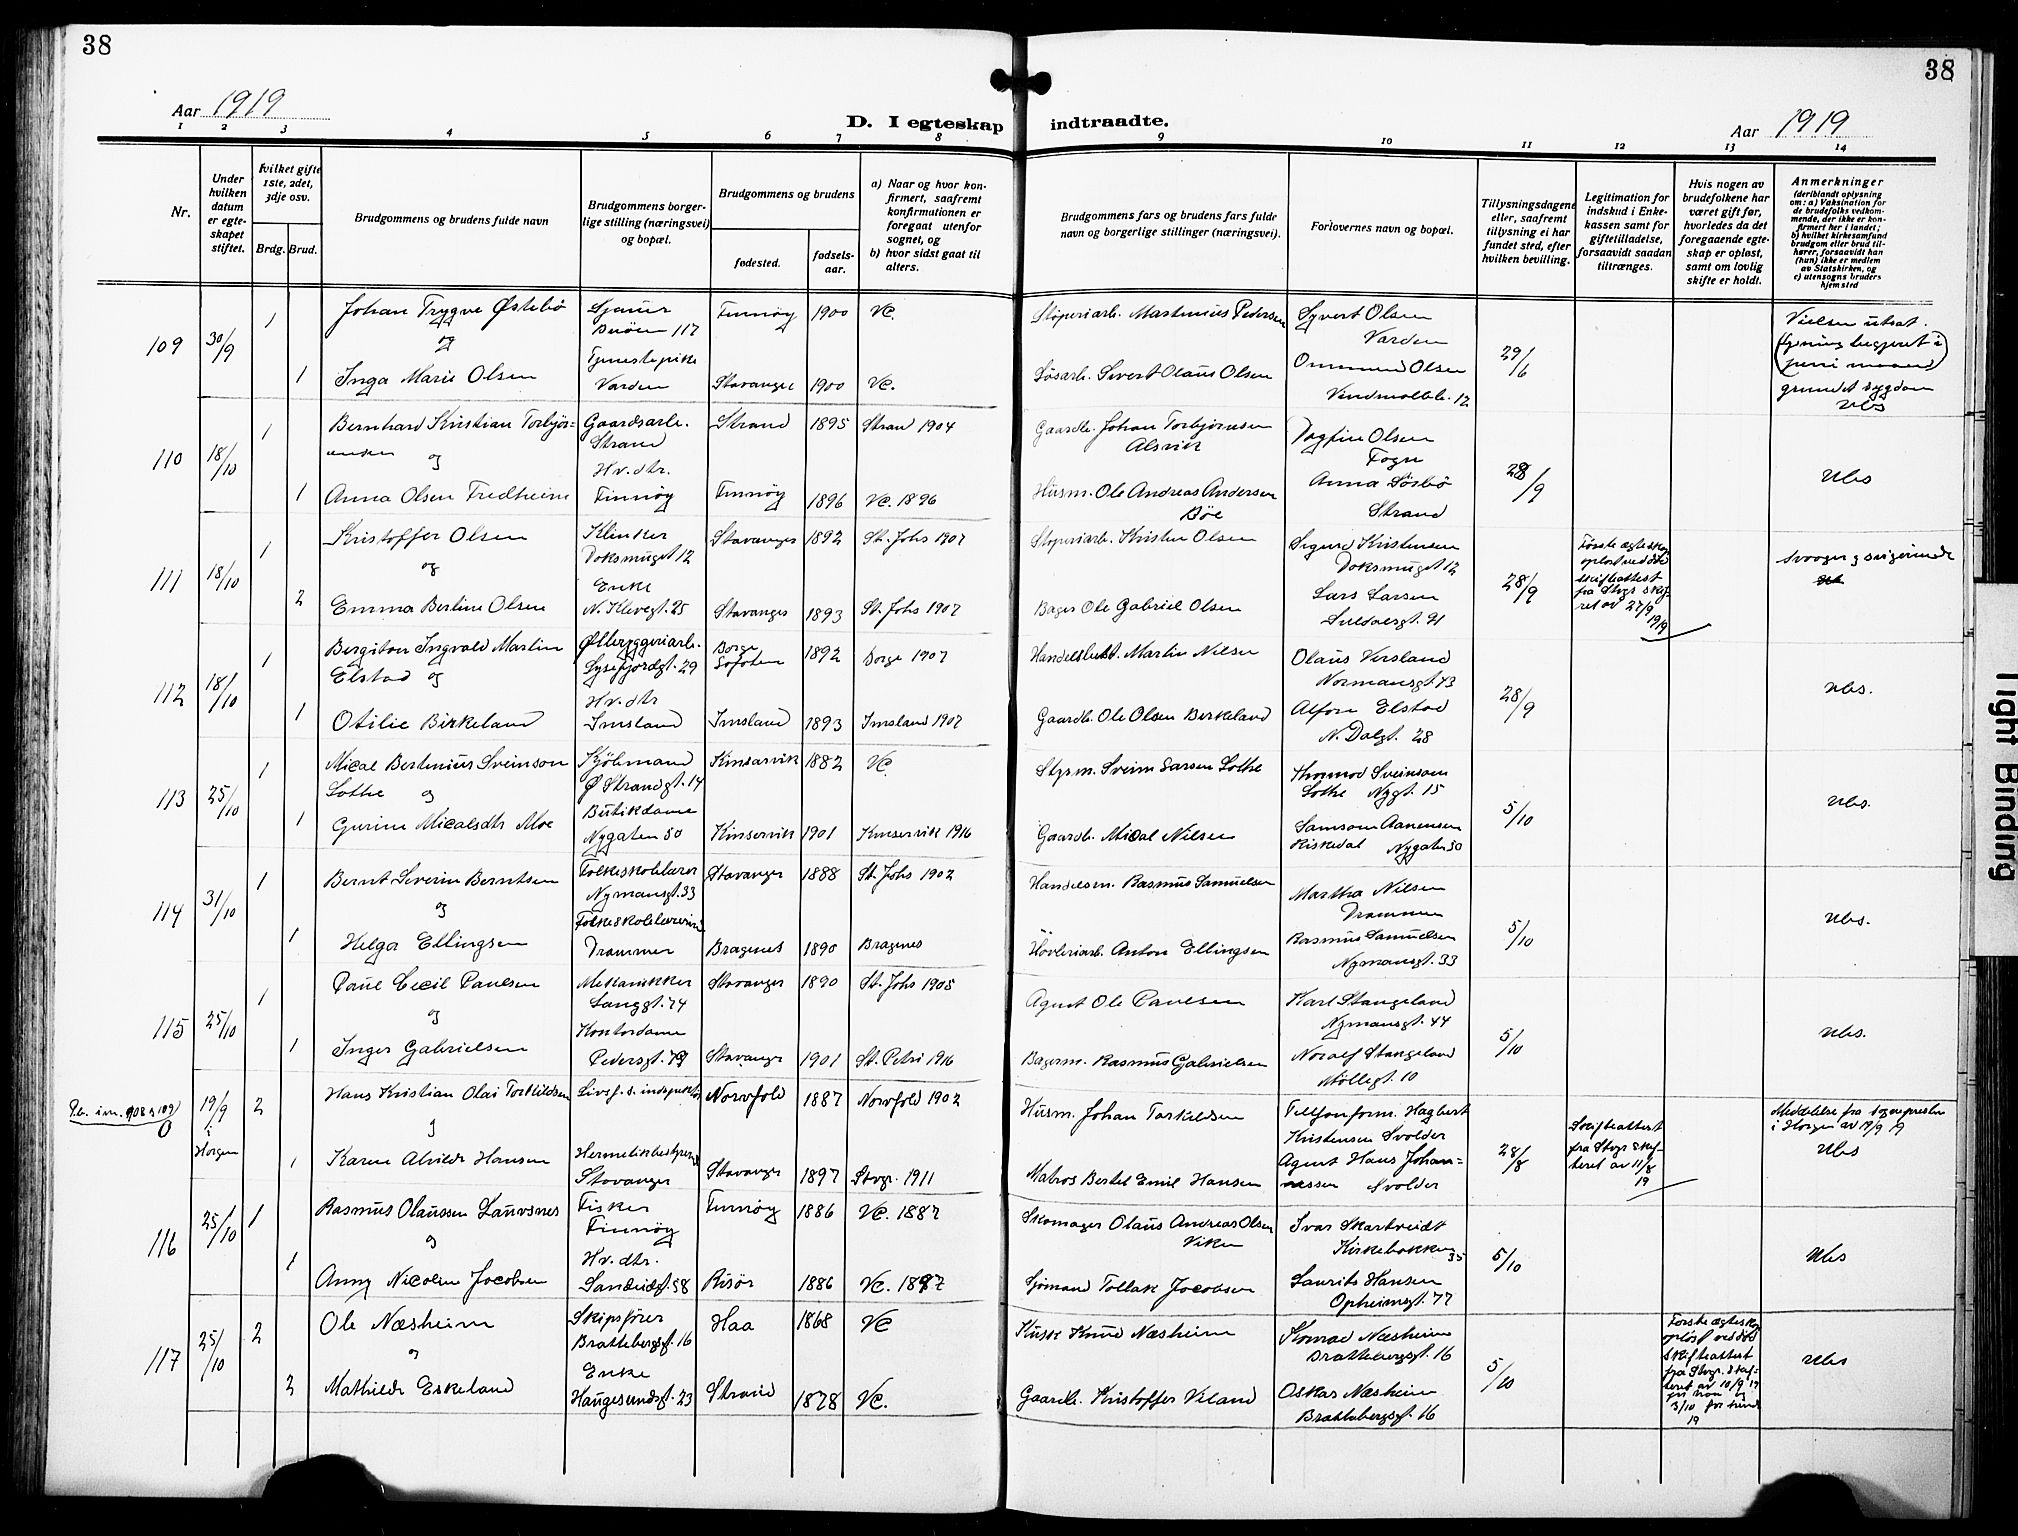 38
38
Aar 1919
D. I egteskap indtraadte.
Aar 1919
1 2 3 4 5 6 7 8 9 10 11 12 13 14
Nr.
Under hvilken datum er egteskapet stiftet.
hvilket gifte 1ste, 2det, 3dje osv.
Brdg. Brud.
Brudgommens og brudens fulde navn
Brudgommens borgerlige stilling (næringsvei) og bopæl.
Brudgommens og brudens
fødested.
fødselsaar.
a) Naar og hvor konfirmert, saafremt konfirmationen er foregaat utenfor sognet, og
b) hvor sidst gaat til alters.
Brudgommens fars og brudens fars fulde navn og borgerlige stillinger (næringsvei).
Forlovernes navn og bopæl.
Tillysningsdagene eller, saafremt tillysning ei har fundet sted, efter hvilken bevilling.
Legitimation for indskud i Enkekassen samt for giftetilladelse, forsaavidt saadan tiltrænges.
Hvis nogen av brudefolkene har været gift før, hvorledes da det foregaaende egteskap er opløst, samt om lovlig skifte er holdt.
Anmerkninger
(deriblandt oplysning om: a) Vaksination for de brudefolks vedkommende, der ikke er konfirmert her i landet; b) hvilket kirkesamfund brudgom eller brud tilhører, forsaavidt han (hun) ikke er medlem av Statskirken, og c) utensogns bruders hjemsted
109 30/9 1 Johan Trygve Østebö Sjauer Buöen 117 Finnöy 1900 Vc. Stöperiarb. Martinius Pedersen Syvert Olsen Varden
og
1 Inga Marie Olsen Tjenestepike Varden Stavanger 1900 Vc. Løsarb. Sivert Olaus Olsen Ommund Olsen Vindmölleb. 12 29/6
Vielsen utsat. (lysning begjæret i juni maaned) grundet sygdom Ubs
110 18/10 1 Bernhard Kristian Torbjörnsen Gaardsarb. Strand Strand 1895 Strand 1904 Gaardb. Johan Torbjörnsen Alsvik Dagfin Olsen Fogn
og
1 Anna Olsen Fredheim Hv. dtr. Finnöy Finnöy 1896 Vc. 1896 Husm. Ole Andreas Andersen Böe Anna Sösbö Strand 28/9 Ubs
111 18/10 1 Kristoffer Olsen Klinker Doksmuget 12 Stavanger 1892 St. Johs 1907 Stöperiarb. Kristen Olsen Sigurd Kristensen Doksmuget 12
og
2 Emma Bertine Olsen Enke N. Klevegt. 25 Stavanger 1893 St. Johs 1907 Bager Ole Gabriel Olsen Lars Larsen Suldalsgt. 91 28/9
Første ægteskap opløst ved död skifteattest fra Stvgr skifteret av 27/9 1919
Svoger og svigerinde
112 18/10 1 Bergiton Ingvald Martin Elstad og Ølbryggeriarb. Lysefjordgt. 29 Borge Lofoten 1892 Borge 1907 Handelsbest. Martin Nilsen Olaus Virsland Normansgt. 43
1 Otilie Birkeland Hv. dtr Imsland Imsland 1893 Imsland 1907 Gaardb. Ole Olsen Berkeland Alfon Elstad N. Dalgt. 28 28/9 Ubs.
113 25/10 1 Mical Bertinius Sveinson Lothe og Kjölmand Ø Strandgt. 14 Kinsarvik 1882 Vc. Styrm. Sveim Larsen Lothe Thormod Sveinson Lothe Nygt. 15
1 Gurine Micalsdtr Moe Butikdame Nygaten 50 Kinservik 1901 Kinservik 1916 Gaardb. Mical Nilsen Samson Aanensen Kiskedal Nygaten 50 5/10 Ubs.
114 31/10 1 Bernt Severin Berntsen Folkeskolelærer Nymansgt. 33 Stavanger 1888 St. Johs 1902 Handelsm. Rasmus Samuelsen Martha Nilsen Drammen
og
1 Helga Ellingsen Folkeskolelærerinde Drammen Bragenes 1890 Bragenes Hövleriarb. Anton Ellingsen Rasmus Samuelsen Nymansgt. 33 5/10 Ubs.
115 25/10 1 Paul Cecil Paulsen Mekanikker Langgt. 74 Stavanger 1890 St. Johs 1905 Agent Ole Paulsen Karl Stangeland Nymansgt. 44
og
1 Inger Gabrielsen Kontordame Pedersgt. 79 Stavanger 1901 St. Petri 1916 Bagerm. Rasmus Gabrielsen Noralf Stangeland Möllegt. 10 5/10 Ubs.
19/9 i Horgen 2 Hans Kristian Olai Torkildsen Livsf. s. inspektör Norvfold 1887 Norvfold 1902 Husm. Johan Torkeldsen Telefonform. Hagbert Kristensen Svolder
og
1 Karen Alvilde Hansen Stavanger Stavanger 1897 Stvgr. 1911 Matros Bertel Emil Hansen Agent Hans Johannessen Svolder 28/8
Skifteattest fra Stvgr skifteret av 11/8 19
Meddelelse fra sognepresten i Horgen av 19/9 19 Ubs
116 25/10 1 Rasmus Olaussen Lauvsnes Fisker Finnöy Finnöy 1886 Vc. 1887 Skomager Olaus Andreas Olsen Viken Ivar Skartveidt Kirkebakken 35
og
1 Anny Nicoline Jacobsen Hv. dtr. Sandeidgt. 58 Risör 1886 Vc. 1887 Sjömand Tollak Jacobsen Laurits Hansen Opheimsgt. 77 5/10 Ubs
117 25/10 2 Ole Næsheim Skipsfører Brattebergsgt. 16 Haa 1868 Vc Kusk Knud Næsheim Konrad Næsheim Brattebergsgt. 16
og
2 Mathilde Eskeland Enke Haugesundsgt. 23 Strand 1878 Vc. Gaardb. Kristoffer Veland Oskar Næsheim Brattebergsgt. 16 5/10
Første ægteskap opløst ved död Skifteattest fra Stvgr. skifteret av 10/9 19 for ham og 3/10 for hende 19
Ubs
Tight Binding